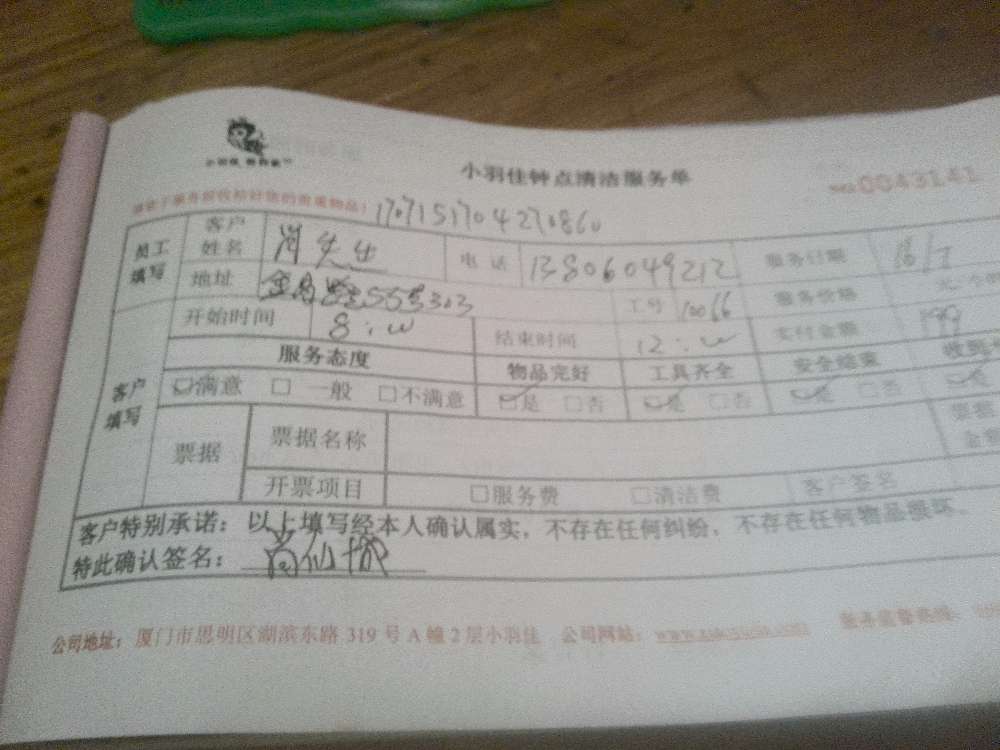 小羽佳钟点清洁服务单
0043141
170715170427086
员工填写 客户姓名 先生 电话 13806049212 服务日期
地址 55号303 工号 10066 服务价格 元
客户填写 开始时间 8: 结束时间 12: 支付金额 199
服务态度 物品完好 工具齐全 安全结束
满意 □ 一般 □不满意 □是 □否 是 □否 是 □否 是
票据 票据名称
开票项目 □服务费 □清洁费 客户签名
客户特别承诺：以上填写经本人确认属实，不存在任何纠纷，不存在任何物品损坏。
特此确认签名：
公司地址：厦门市思明区湖滨东路 319 号 A 幢 2 层小羽佳 公司网站： 服务监督热线：